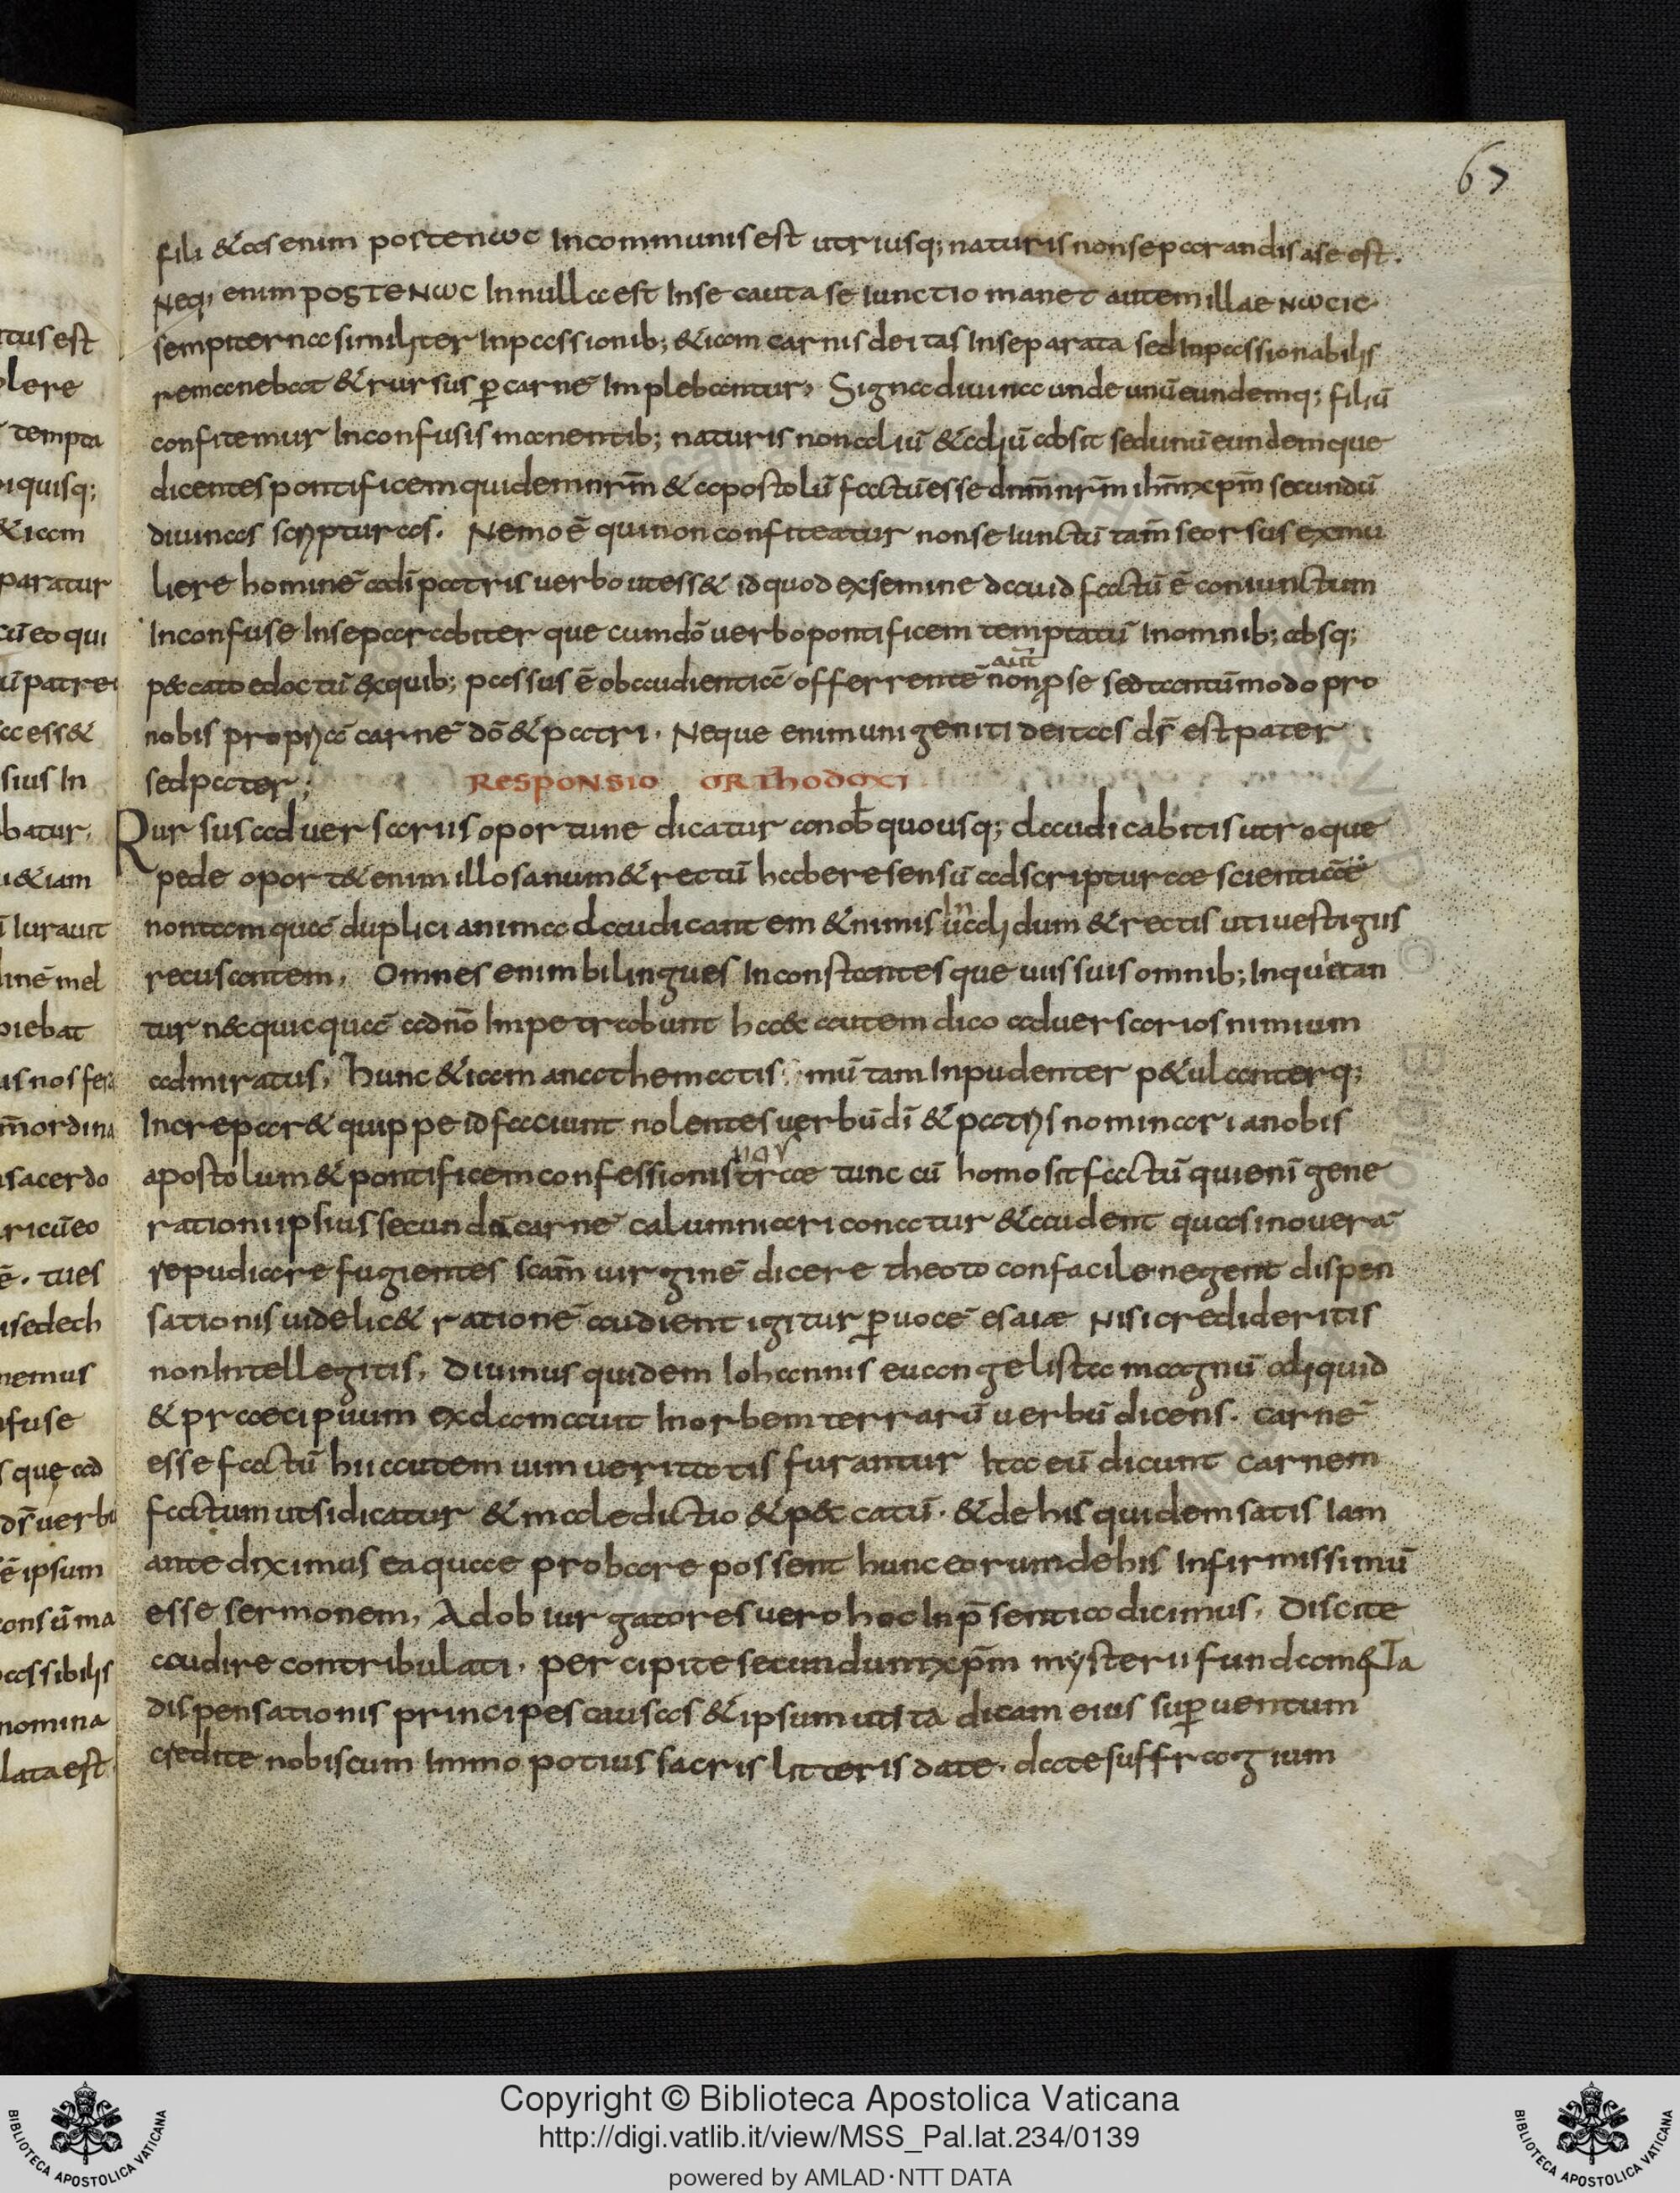 67
fili & as enim postenωc In communis est utriusq; naturis non separandis a se est.
Neq; enim postenωc In nulla est In se cauta se Iunctio manet autem illae nωcic
sempiterna similiter Inpassionib; & iam carnis deitas Inseparata sed Inpassionabilis
remanebat & rursus p̱ carnē Implebantur, Signa diuina unde unū eundemq; filiū
confitemur Inconfusis manentib; naturis non aliū & aliū absit sed unū eundemque
dicentes pontificem quidem nr̄m & apostolū factū esse dnm̄ nr̄m ihm̄ xpm̄ secundū
diuinas scripturas. Nemo ē qui non confiteatur non se Iunctū tam̄ seorsus ex mu
liere hominē a dī patris uerbo ut ess& id quod ex semine dauid factū ē coniunctum
Inconfuse Inseparabiter que cum dō uerbo pontificem temptatū In omnib; absq;
p&cato edoctū ex quib; passus ē obaudientiā offerrentē aūt non p̱ se sed tantūmodo pro
nobis propriā carnē dō & patri. Neque enim unigeniti deitas ds̄ est pater
sed pater;
Responsio orthodoxi
Rursus aduersariis oportune dicatur a nob̄ quousq; daudicabitis utroque
pede oport& enim illo sanum & rectū habere sensū ad scripturae scientiā
non tamquā duplici anima daudicantem & nimis In ualidum & rectis uti uestigiis
recusantem, Omnes enim bilingues Inconstantes que uiis suis omnib; Inquietan
tur n&quicquā a dnō Impetrabunt ha& autem dico aduersarios nimium
admiratus, hunc & iam anathematismū tam Inpudenter p&ulanterq;
Increpar& quippe id faciunt nolentes uerbū dī & patris nominari a nobis
apostolum & pontificem confessionis nr̄ae tunc cū homo sit factū qui enī gene
rationi ipsius secundū carnē calumniari conatur & audent quasi noua
repudiare fugientes scam̄ uirginē dicere theotocon facile negent dispen
sationis uidelic& rationē audient igitur p̱ uocē esaiæ Nisi credideritis
non Intellegitis, Diuinus quidem Iohannis euangelista magnū aliquid
& praecipuum exclamauit In orbem terrarū uerbū dicens. carnē
esse factū hii autem uim ueritatis furantur Ita eū dicunt carnem
factum ut si dicatur & maledictio & p&catū. & de his quidem satis Iam
ante diximus ea quae probare possent hunc eorum de his Infirmissimū
esse sermonem, Ad obiurgatores uero hoc In p̄sentia dicimus, Discite
audire contribulati, percipite secundum xpm̄ mysterii fundam&Ta
dispensationis principes eius as & ipsum ut ita dicam eius sup̱uentum
credite nobiscum Immo potius sacris litteris date. date suffragium
Copyright © Biblioteca Apostolica Vaticana
http://digi.vatlib.it/view/MSS_Pal.lat.234/0139
powered by AMLAD·NTT DATA